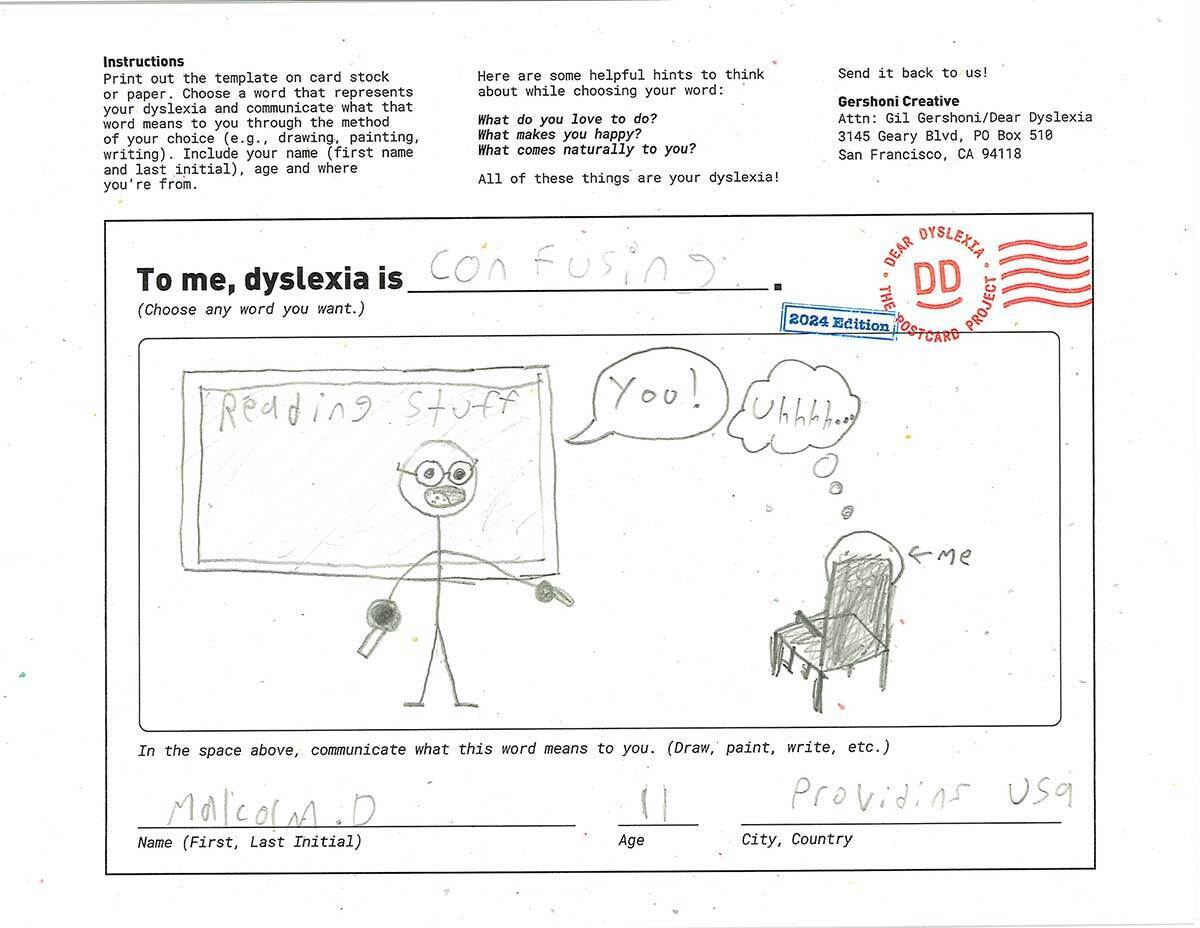 Instructions
Print out the template on card stock
or paper. Choose a word that represents
your dyslexia and communicate what that
word means to you through the method
of your choice (e.g., drawing, painting,
writing). Include your name (first name
and last initial), age and where
you're from.
Here are some helpful hints to think
about while choosing your word:
What do you love to do?
What makes you happy?
What comes naturally to you?
All of these things are your dyslexia!
Send it back to us!
Gershoni Creative
Attn: Gil Gershoni/Dear Dyslexia
3145 Geary Blvd, PO Box 510
San Francisco, CA 94118
To me, dyslexia is confusing.
(Choose any word you want.)
DEAR DYSLEXIA • THE POSTCARD PROJECT •
DD
2024 Edition
Reading stuff
You!
Uhhhh...
←Me
In the space above, communicate what this word means to you. (Draw, paint, write, etc.)
Malcolm.D
11
Providins USA
Name (First, Last Initial)
Age
City, Country